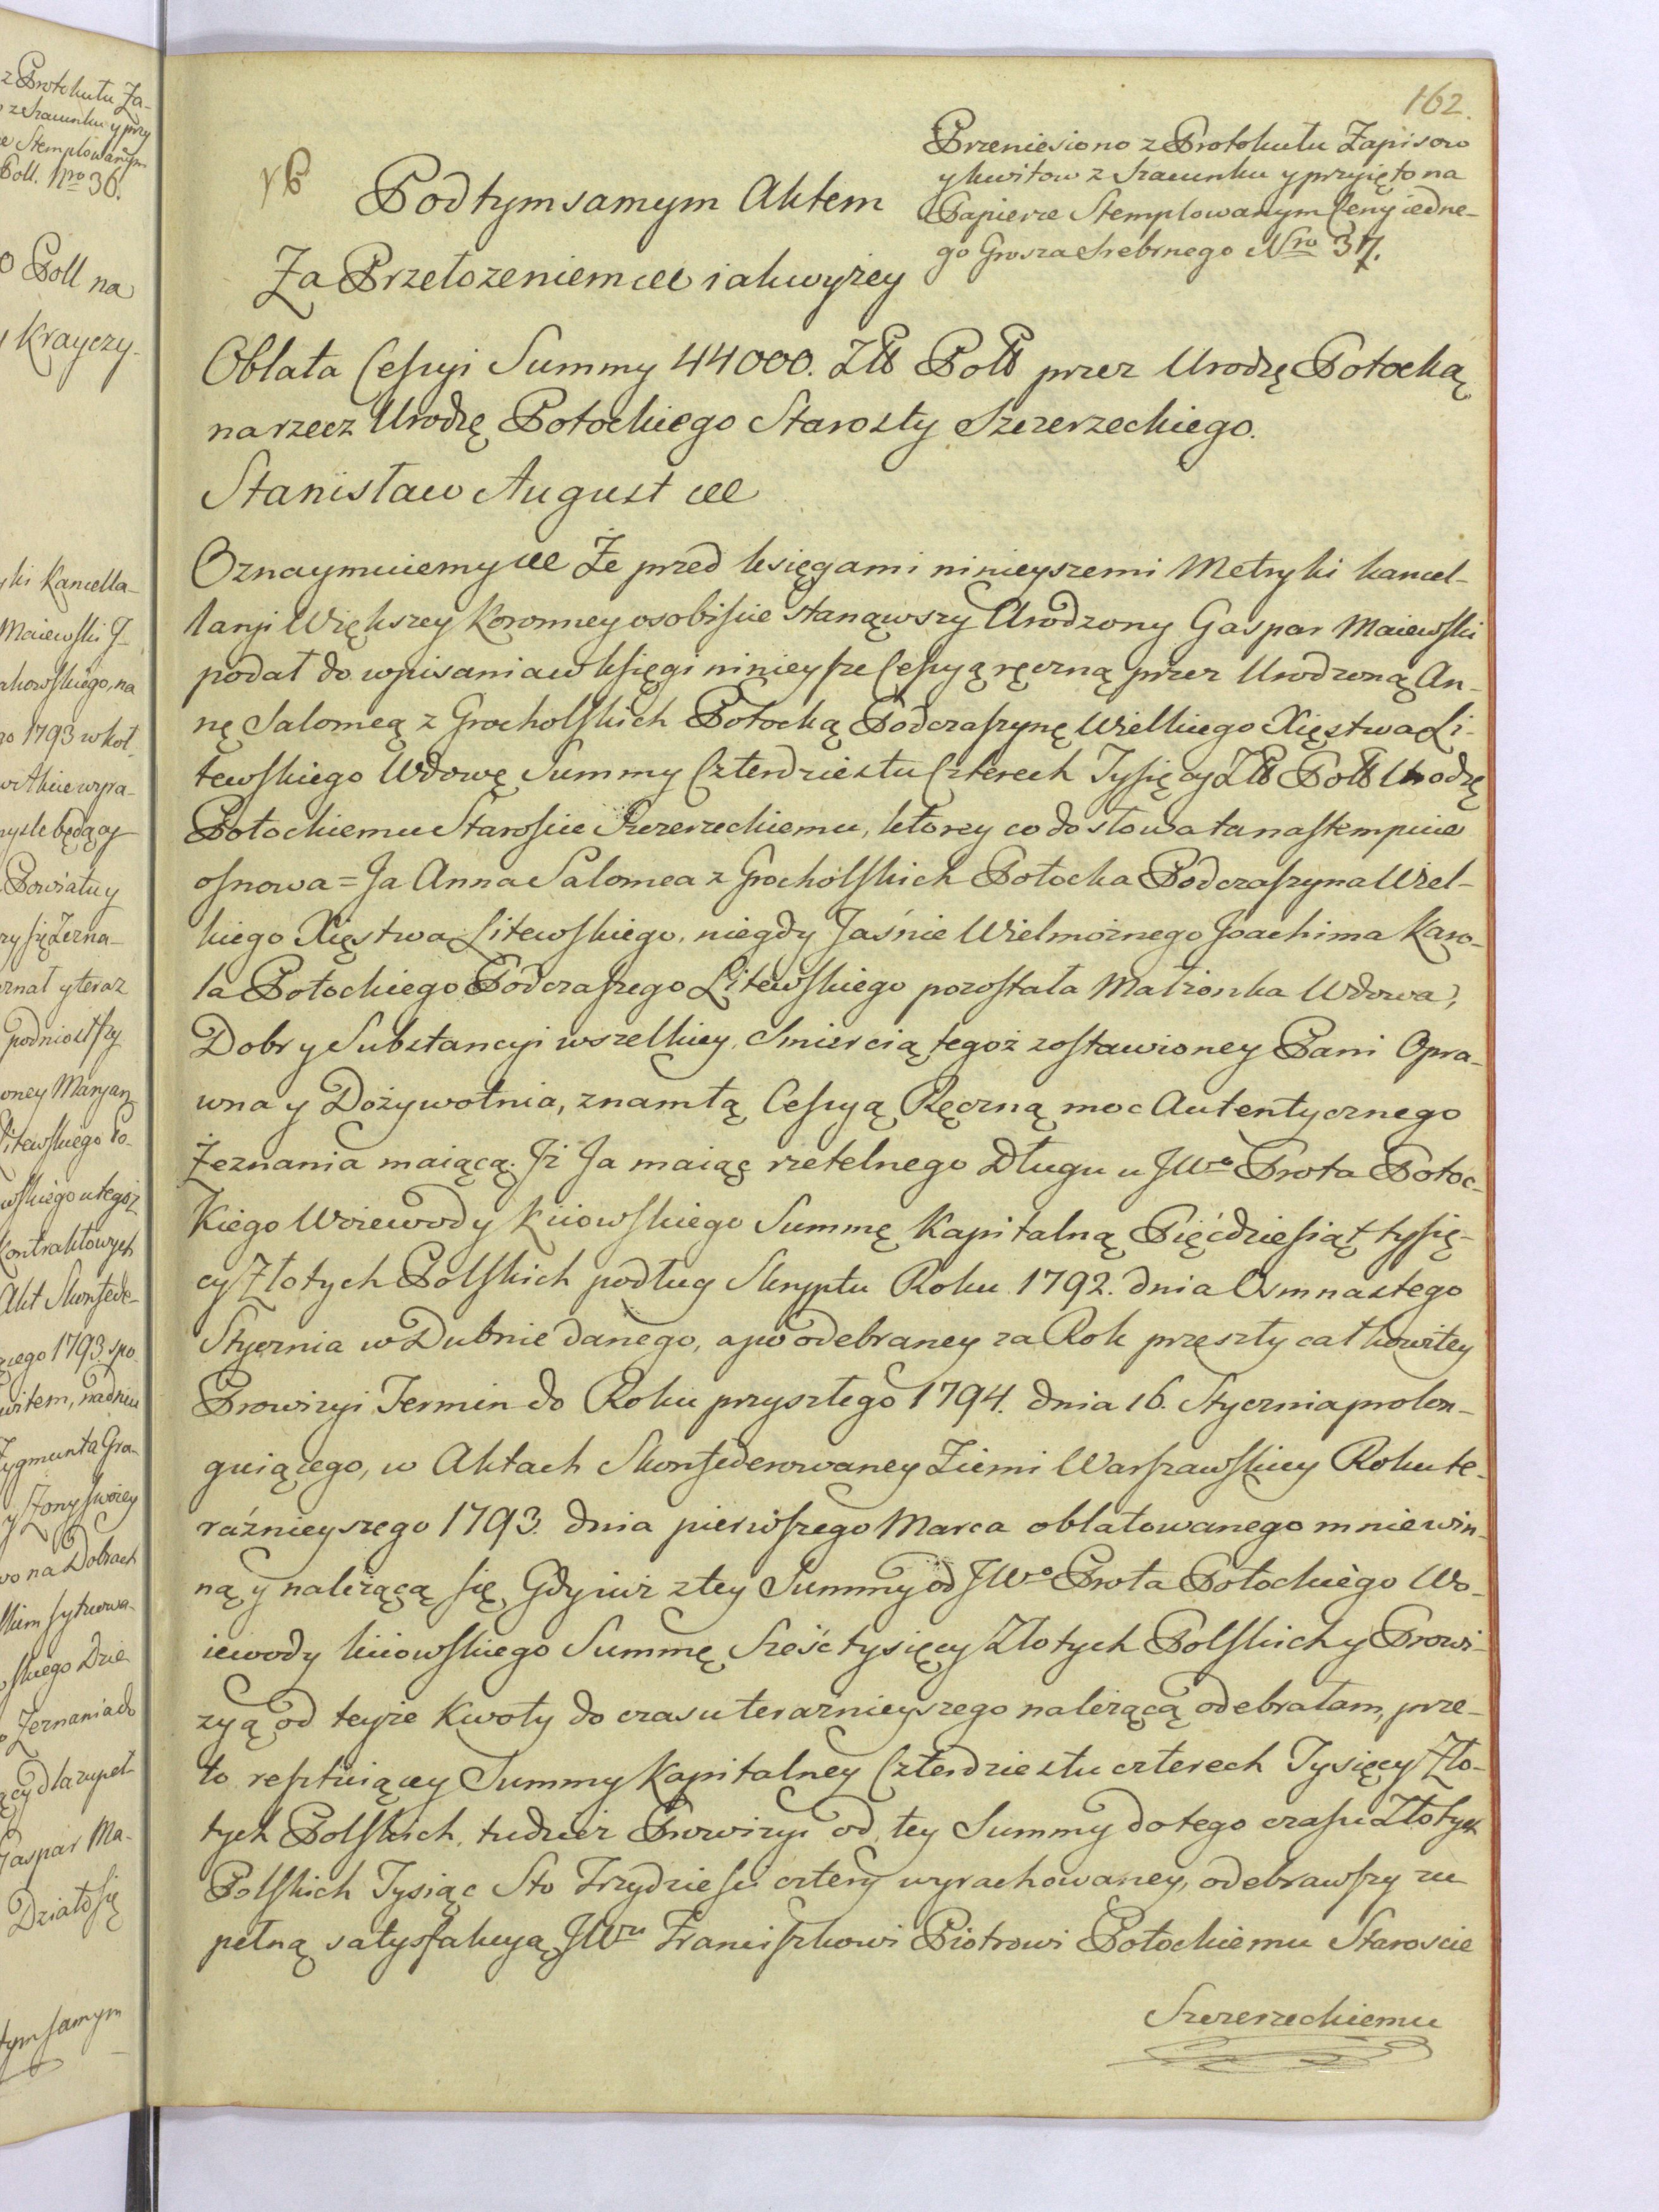 162.
Przeniesiono z Protokułu Zapisow
y kwitow z Szacunku y przyięto na
Papierze Stemplowanym Ceny iedne-
go Grosza Srebrnego Nro 37.
Pod tym samym Aktem
Za Przełozeniem etc iak wyżey
Oblata Cessyi Summy 44000. Zł Poll przez Urodzę Potocką
na rzecz Urodzę Potockiego Starosty Szczerzeckiego.
Stanisław August etc
Oznaymuiemy etc Że przed księgami ninieyszemi Metryki kancel-
laryi Większey Koronney osobiście stanąwszy Urodzony Gaspar Maiewski
podał do wpisania w księgi ninieysze Cessyą ręczną przez Urodzoną An-
nę Salomeą z Grocholskich Potocką Podczaszynę Wielkiego Xięstwa Li-
tewskiego Wdowę Summy Czterdziestu Czterech Tysięcy Zł Poll Urodzę
Potockiemu Staroście Szczerzeckiemu, ktorey co do słowa ta nastempuie
osnowa = Ja Anna Salomea z Grocholskich Potocka Podczaszyna Wiel-
kiego Xięstwa Litewskiego, niegdy Jaśnie Wielmożnego Joachima Karo-
la Potockiego Podczaszego Litewskiego pozostała Małżonka Wdowa,
Dobr y Substancyi wszelkiey, Smiercią tegoż zostawioney Pani Opra-
wna y Dożywotnia, znam tą Cessyą Ręczną moc Autentycznego
Zeznania maiącą. Jż Ja maiąc rzetelnego Długu u JWo Prota Potoc-
Kiego Woiewody Kiiowskiego Summę Kapitalną Pięćdziesiąt tysię-
cy Złotych Polskich podług Skryptu Roku 1792. dnia Osmnastego
Stycznia w Dubnie danego, a po odebraney za Rok przeszły całkowitey
Prowizyi Termin do Roku przyszłego 1794. dnia 16. Stycznia prolon-
guiącego, w Aktach Skonfederowaney Ziemi Warszawskiey Roku te-
raźnieyszego 1793. dnia pierwszego Marca oblatowanego mnie win-
ną y należącą się, Gdy iuż z tey Summy od JWo Prota Potockiego Wo-
iewody kiiowskiego Summę Sześć tysięcy Złotych Polskich y Prowi-
zyą od teyże Kwoty do czasu teraznieyszego należącą odebrałam, prze-
to resztuiącey Summy Kapitalney Czterdziestu czterech Tysięcy Zło-
tych Polskich, tudzież Prowizyi od tey Summy do tego czasu Złotych
Polskich Tysiąc Sto Trzydzieści cztery wyrachowaney, odebrawszy zu
pełną satysfakcyą JWu Franciszkowi Piotrowi Potockiemu Staroscie
Szczerzeckiemu